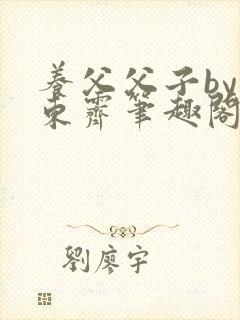 養父父子by
束霽筆趣閣
劉廖宇